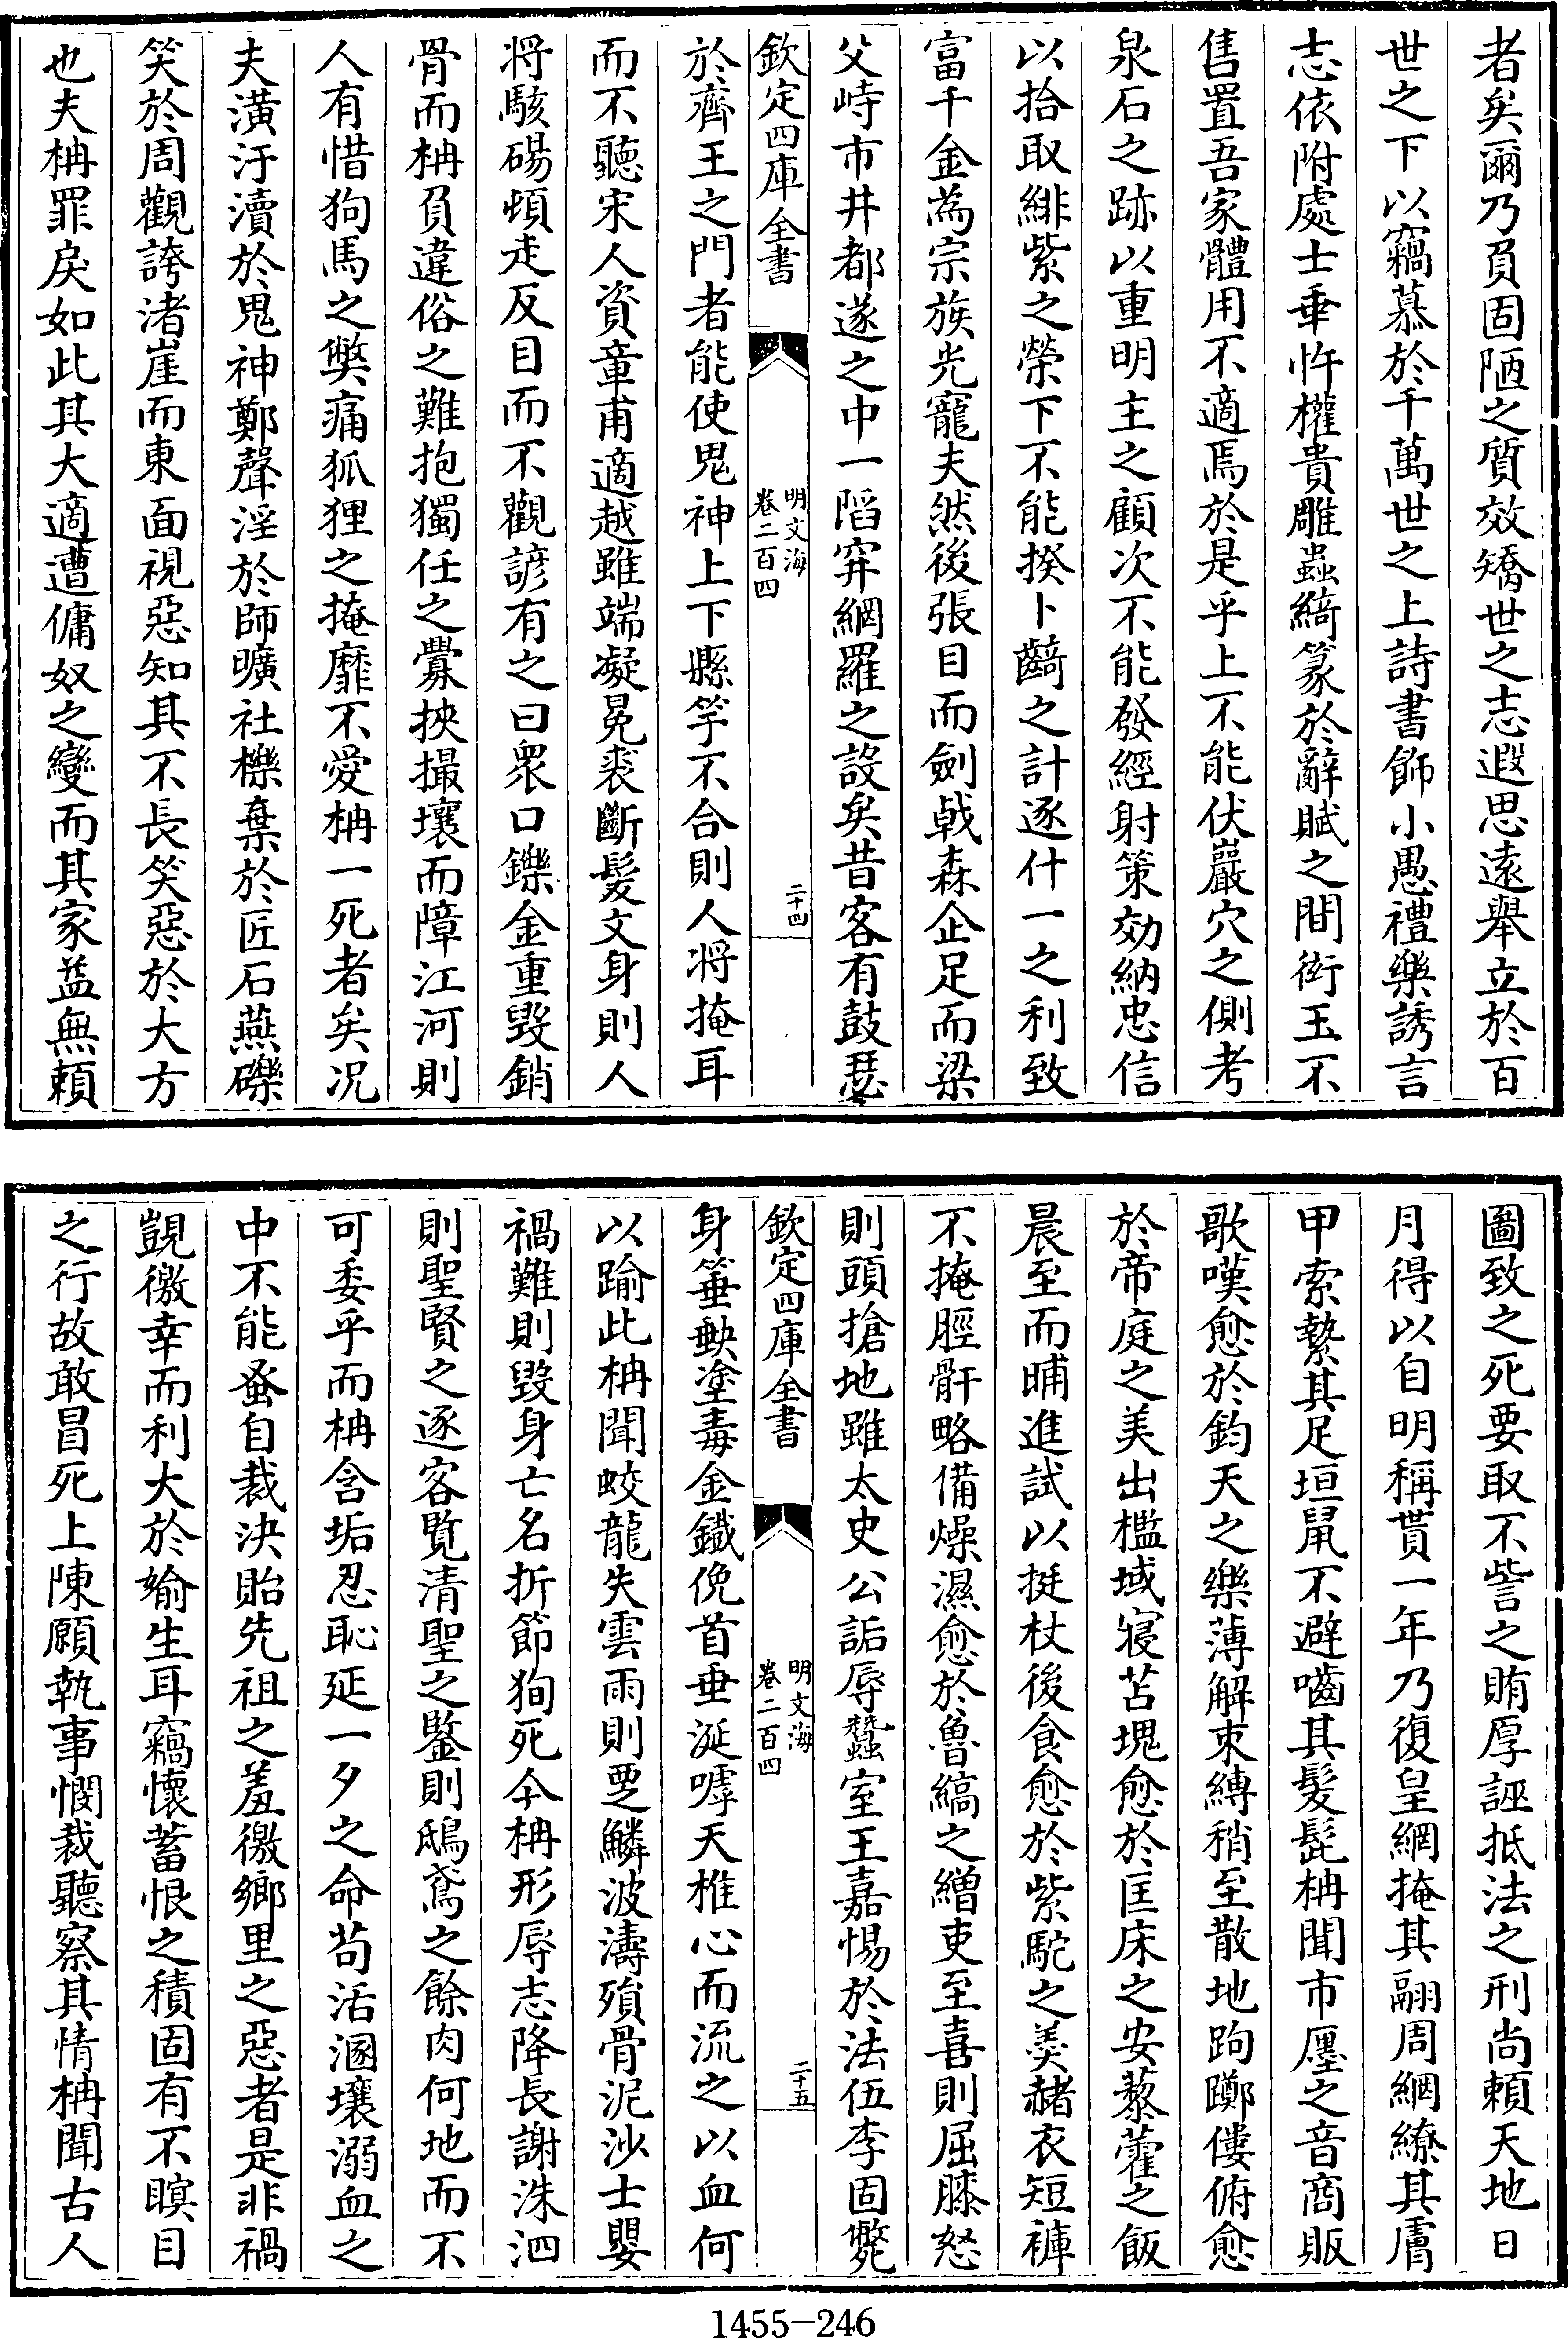 者矣爾乃負固陋之質效矯世之志遐思遠舉立於百
世之下以竊慕於千萬世之上詩書飾小愚禮樂誘言
志依附處士垂忤權貴雕蟲綺篆於辭賦之間衒玉不
售置吾家體用不適焉於是乎上不能伏巖穴之側考
泉石之跡以重明主之顧次不能發經射策効納忠信
以拾取緋紫之榮下不能揆卜齮之計逐什一之利致
富千金為宗族光寵夫然後張目而劍戟森企足而梁
父峙市井都遂之中一䧟穽網羅之設矣昔客有鼓瑟
欽定四庫全書
明文海
卷二百四
二十四
於齊王之門者能使鬼神上下縣竽不合則人將掩耳
而不聽宋人資章甫適越雖端凝冕裘斷髮文身則人
將駭碭頓走反目而不觀諺有之曰衆口鑠金重毀銷
骨而柟負違俗之難抱獨任之釁挾撮壤而障江河則
人有惜狗馬之獘痛狐狸之掩靡不愛柟一死者矣况
夫潢汙瀆於鬼神鄭聲淫於師曠社櫟棄於匠石燕礫
笑於周觀誇渚崖而東面視惡知其不長笑惡於大方
也夫柟罪戾如此其大適遭傭奴之變而其家益無賴
圖致之死要取不訾之賄厚誣抵法之刑尚賴天地日
月得以自明稱貰一年乃復皇網掩其翮周網繚其膚
甲索縶其足垣鼠不避嚙其髮髭柟聞市廛之音商販
歌嘆愈於鈞天之樂薄解束縛稍至散地跔躑僂俯愈
於帝庭之美出檻域寢苫塊愈於匡床之安藜藿之飯
晨至而晡進試以挺杖後食愈於紫駝之羮赭衣短褲
不掩脛骭略備燥濕愈於魯縞之繒吏至喜則屈膝怒
則頭搶地雖太史公詬辱蠶室王嘉惕於法伍李固斃
欽定四庫全書
明文海
卷二百四
二十五
身箠軮塗毒金鐵俛首垂涎嘑天椎心而流之以血何
以踰此柟聞蛟龍失雲雨則垔鱗波濤殞骨泥沙士嬰
禍難則毀身亡名折節狥死今柟形辱志降長謝洙泗
則聖賢之逐客覽清聖之鑒則鴟鳶之餘肉何地而不
可委乎而柟含垢忍恥延一夕之命茍活溷壤溺血之
中不能蚤自裁決貽先祖之羞徼鄉里之惡者是非禍
覬徼幸而利大於媮生耳竊懷蓄恨之積固有不瞑目
之行故敢冒死上陳願執事憫裁聽察其情柟聞古人
1455-246